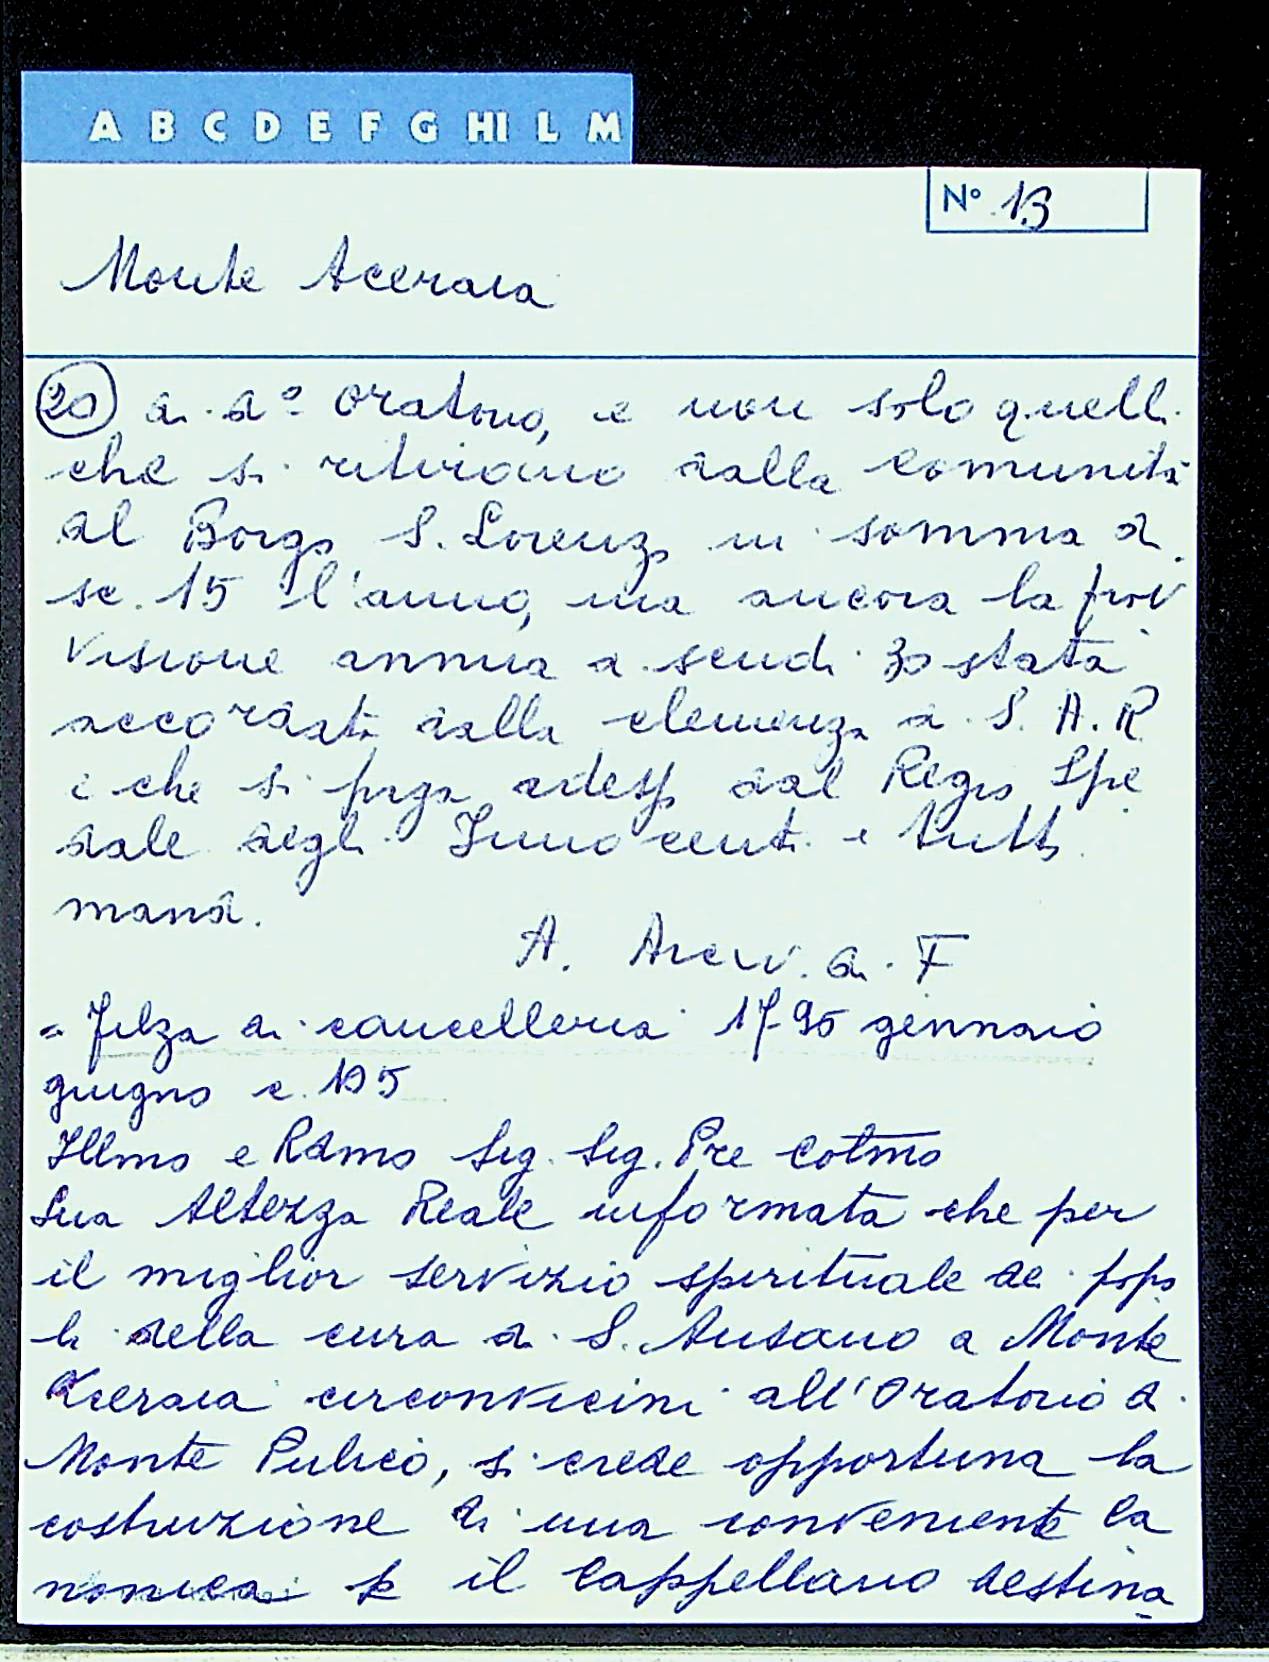 A B C D E F G HI L M
N° 13
Monte Aceraia
20 di d° oratorio, e non solo quelli
che si ritirano dalla comunità
al Borgo S. Lorenzo in somma di
sc. 15 l'anno, ma ancora la prov
visione annua di scudi 30 stata
accordati dalla clemenza di S. A. R
e che si paga adesso dal Regio Spe
dale degli Innocenti e tutto
mand.
A. Arciv. di F
= Filza di cancelleria 1795 gennaio
giugno c. 195
Illmo e Rdmo Sig. Sig. Pre Colmo
Sua Altezza Reale informata che per
il miglior servizio spirituale dei popo
li della cura di S. Ansano a Monte
Aceraia circonvicini all'Oratorio di
Monte Pulico, si crede opportuna la
costruzione di una conveniente ca
nonica p il Cappellano destina